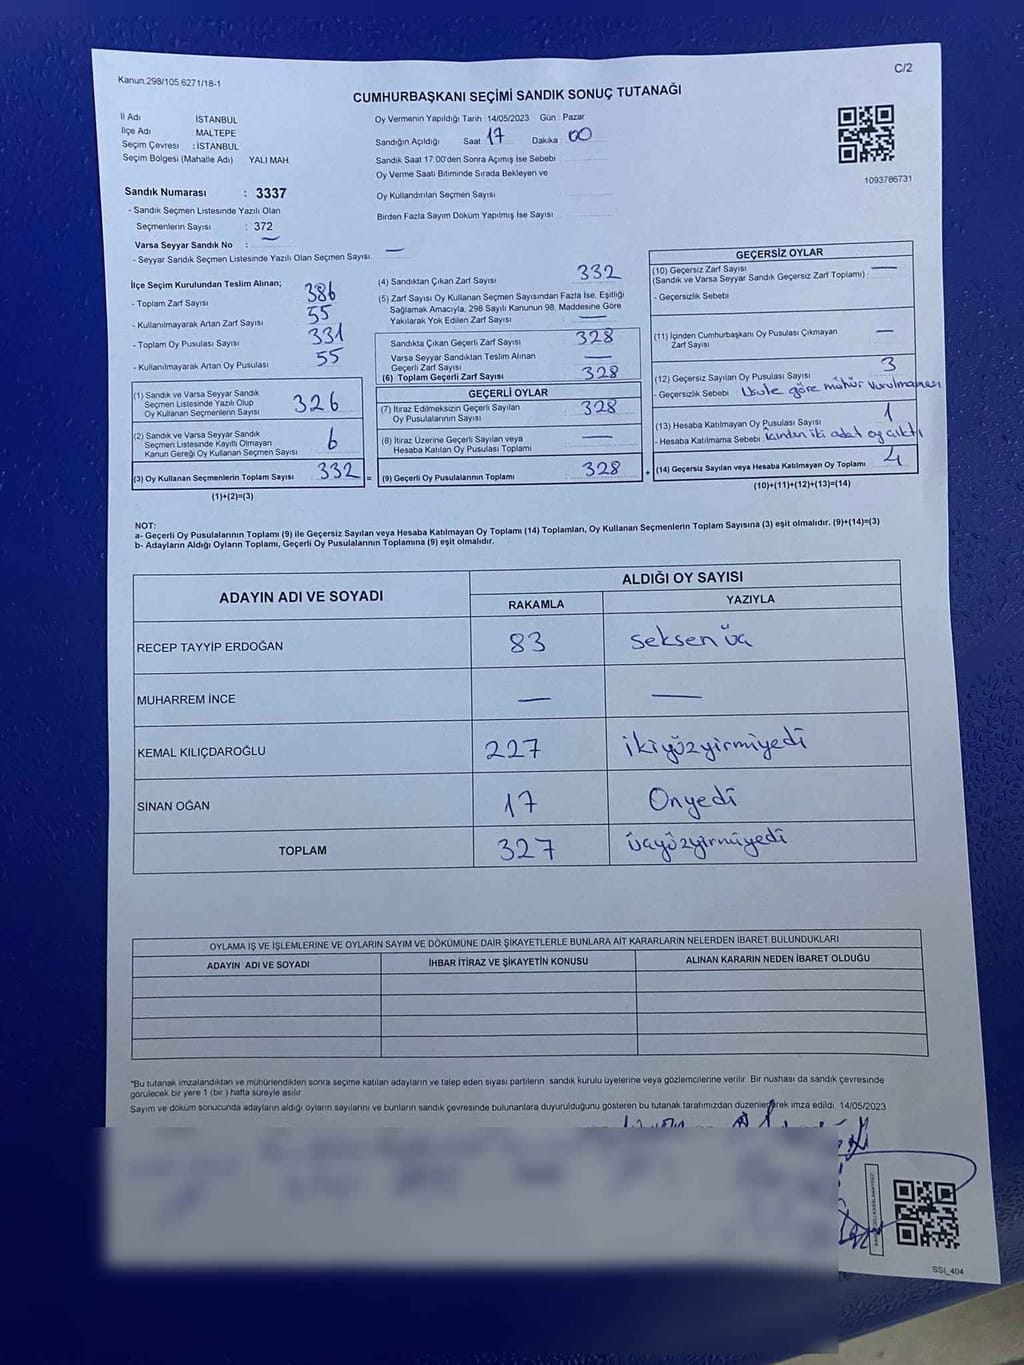 Kanun 298/105 6271/18-1
C/2
CUMHURBAŞKANI SEÇİMİ SANDIK SONUÇ TUTANAĞI
İl Adı İSTANBUL
İlçe Adı MALTEPE
Seçim Çevresi : İSTANBUL
Seçim Bölgesi (Mahalle Adı) YALI MAH
Oy Vermenin Yapıldığı Tarih : 14/05/2023 Gün : Pazar
Sandığın Açıldığı Saat 17 Dakika 00
Sandık Saat 17 00'den Sonra Açımış İse Sebebi
Oy Verme Saati Bitiminde Sırada Bekleyen ve
Oy Kullandırılan Seçmen Sayısı
Birden Fazla Sayım Döküm Yapılmış İse Sayısı
1093786731
Sandık Numarası : 3337
- Sandık Seçmen Listesinde Yazılı Olan
Seçmenlerin Sayısı : 372
Varsa Seyyar Sandık No : —
- Seyyar Sandık Seçmen Listesinde Yazılı Olan Seçmen Sayısı —
İlçe Seçim Kurulundan Teslim Alınan;
- Toplam Zarf Sayısı 386
- Kullanılmayarak Artan Zarf Sayısı 55
- Toplam Oy Pusulası Sayısı 331
- Kullanılmayarak Artan Oy Pusulası 55
(1) Sandık ve Varsa Seyyar Sandık
Seçmen Listesinde Yazılı Olup
Oy Kullanan Seçmenlerin Sayısı 326
(2) Sandık ve Varsa Seyyar Sandık
Seçmen Listesinde Kayıtlı Olmayan
Kanun Gereği Oy Kullanan Seçmen Sayısı 6
(3) Oy Kullanan Seçmenlerin Toplam Sayısı 332 =
(1)+(2)=(3)
(4) Sandıktan Çıkan Zarf Sayısı 332
(5) Zarf Sayısı Oy Kullanan Seçmen Sayısından Fazla İse, Eşitliği
Sağlamak Amacıyla; 298 Sayılı Kanunun 98. Maddesine Göre
Yakılarak Yok Edilen Zarf Sayısı —
Sandıkta Çıkan Geçerli Zarf Sayısı 328
Varsa Seyyar Sandıktan Teslim Alınan
Geçerli Zarf Sayısı —
(6) Toplam Geçerli Zarf Sayısı 328
GEÇERLİ OYLAR
(7) İtiraz Edilmeksizin Geçerli Sayılan
Oy Pusulalarının Sayısı 328
(8) İtiraz Üzerine Geçerli Sayılan veya
Hesaba Katılan Oy Pusulası Toplamı —
(9) Geçerli Oy Pusulalarının Toplamı 328 +
GEÇERSİZ OYLAR
(10) Geçersiz Zarf Sayısı —
(Sandık ve Varsa Seyyar Sandık Geçersiz Zarf Toplamı) :
- Geçersizlik Sebebi
(11) İçinden Cumhurbaşkanı Oy Pusulası Çıkmayan
Zarf Sayısı —
(12) Geçersiz Sayılan Oy Pusulası Sayısı 3
- Geçersizlik Sebebi Usule göre mühür vurulmaması
(13) Hesaba Katılmayan Oy Pusulası Sayısı 1
- Hesaba Katılmama Sebebi İçinden iki adet oy çıktı
(14) Geçersiz Sayılan veya Hesaba Katılmayan Oy Toplamı 4
(10)+(11)+(12)+(13)=(14)
NOT:
a- Geçerli Oy Pusulalarının Toplamı (9) ile Geçersiz Sayılan veya Hesaba Katılmayan Oy Toplamı (14) Toplamları, Oy Kullanan Seçmenlerin Toplam Sayısına (3) eşit olmalıdır. (9)+(14)=(3)
b- Adayların Aldığı Oyların Toplamı, Geçerli Oy Pusulalarının Toplamına (9) eşit olmalıdır.
ADAYIN ADI VE SOYADI ALDIĞI OY SAYISI
RAKAMLA YAZIYLA
RECEP TAYYİP ERDOĞAN 83 Seksen üç
MUHARREM İNCE — —
KEMAL KILIÇDAROĞLU 227 ikiyüzyirmiyedi
SİNAN OĞAN 17 Onyedi
TOPLAM 327 üçyüzyirmiyedi
OYLAMA İŞ VE İŞLEMLERİNE VE OYLARIN SAYIM VE DÖKÜMÜNE DAİR ŞİKAYETLERLE BUNLARA AİT KARARLARIN NELERDEN İBARET BULUNDUKLARI
ADAYIN ADI VE SOYADI İHBAR İTİRAZ VE ŞİKAYETİN KONUSU ALINAN KARARIN NEDEN İBARET OLDUĞU
*Bu tutanak imzalandıktan ve mühürlendikten sonra seçime katılan adayların ve talep eden siyasi partilerin sandık kurulu üyelerine veya gözlemcilerine verilir Bir nüshası da sandık çevresinde
görülecek bir yere 1 (bir ) hafta süreyle asılır
Sayım ve döküm sonucunda adayların aldığı oyların sayılarını ve bunların sandık çevresinde bulunanlara duyurulduğunu gösteren bu tutanak tarafımızdan düzenlenerek imza edildi. 14/05/2023
SSI_404